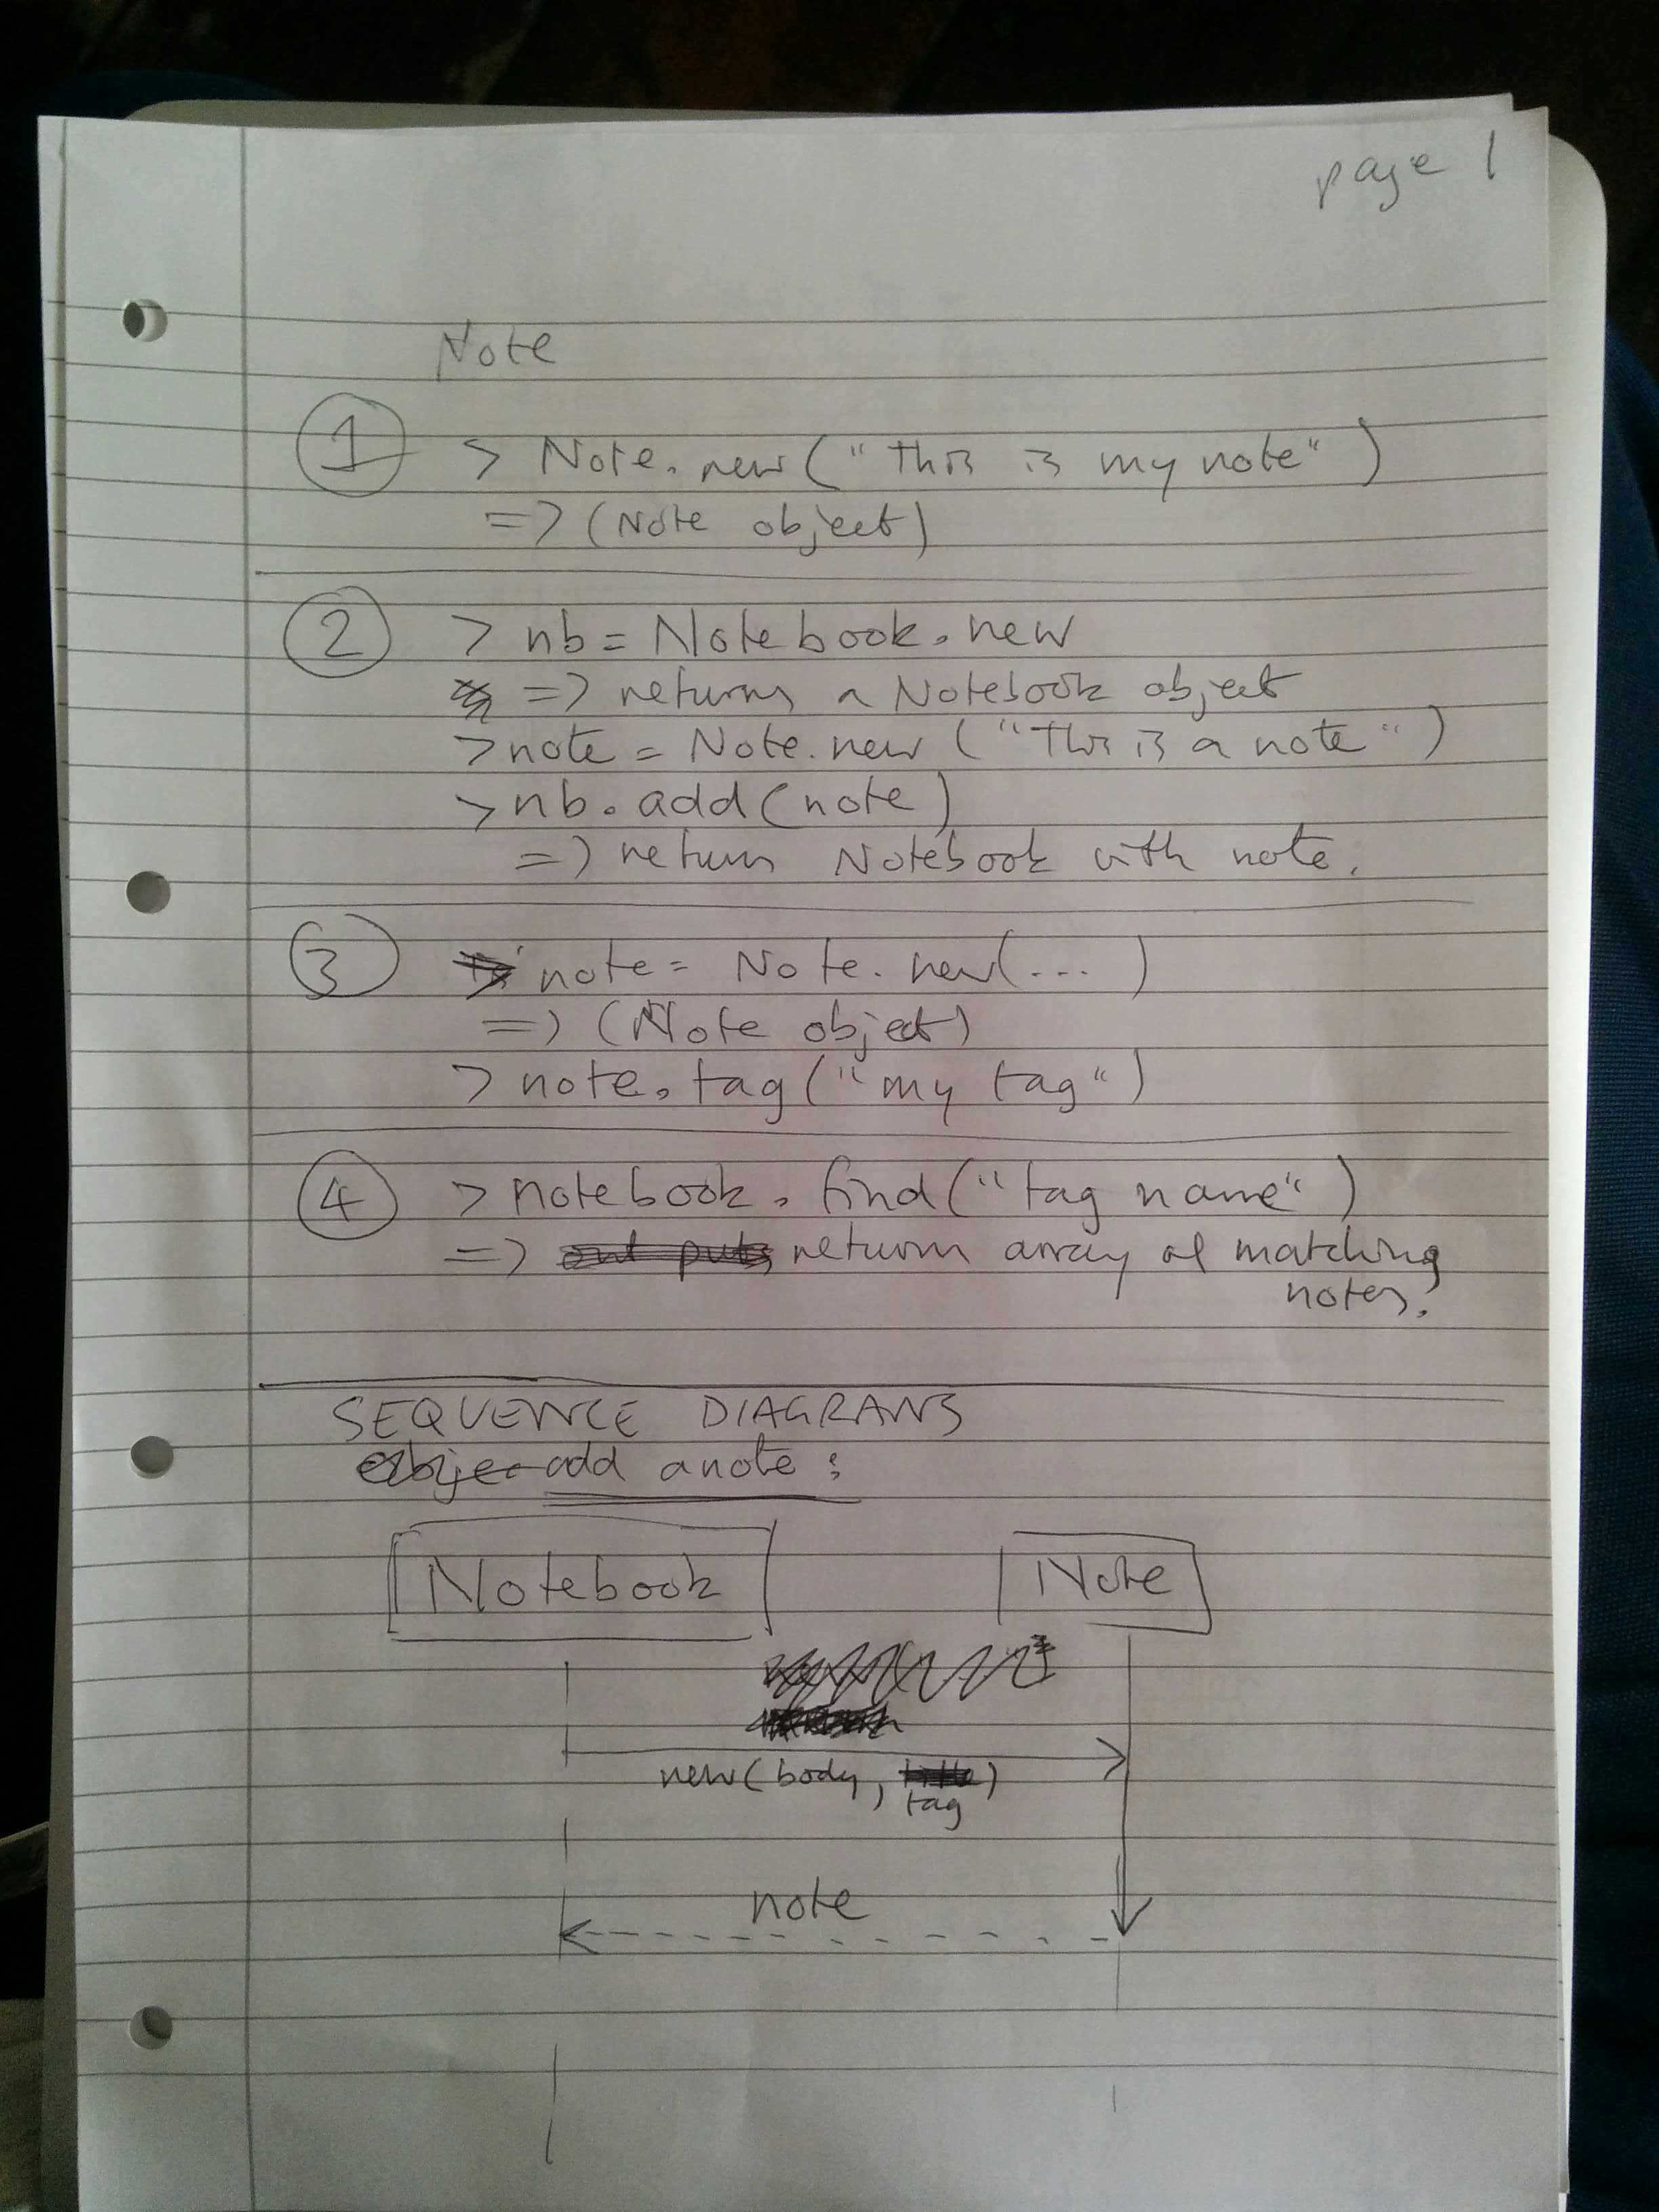 page 1
Note
1 > Note.new("This is my note")
=> (Note object)
2 > nb = Notebook.new
=> returns a Notebook object
> note = Note.new ("This is a note")
> nb.add(note)
=> returns Notebook with note.
3 note = Note.new(...)
=> (Note object)
> note.tag("my tag")
4 > notebook.find("tag name")
=> out puts returns array of matching
notes.
SEQUENCE DIAGRAMS
Objec add a note:
Notebook Note
new(body, title)
tag
note